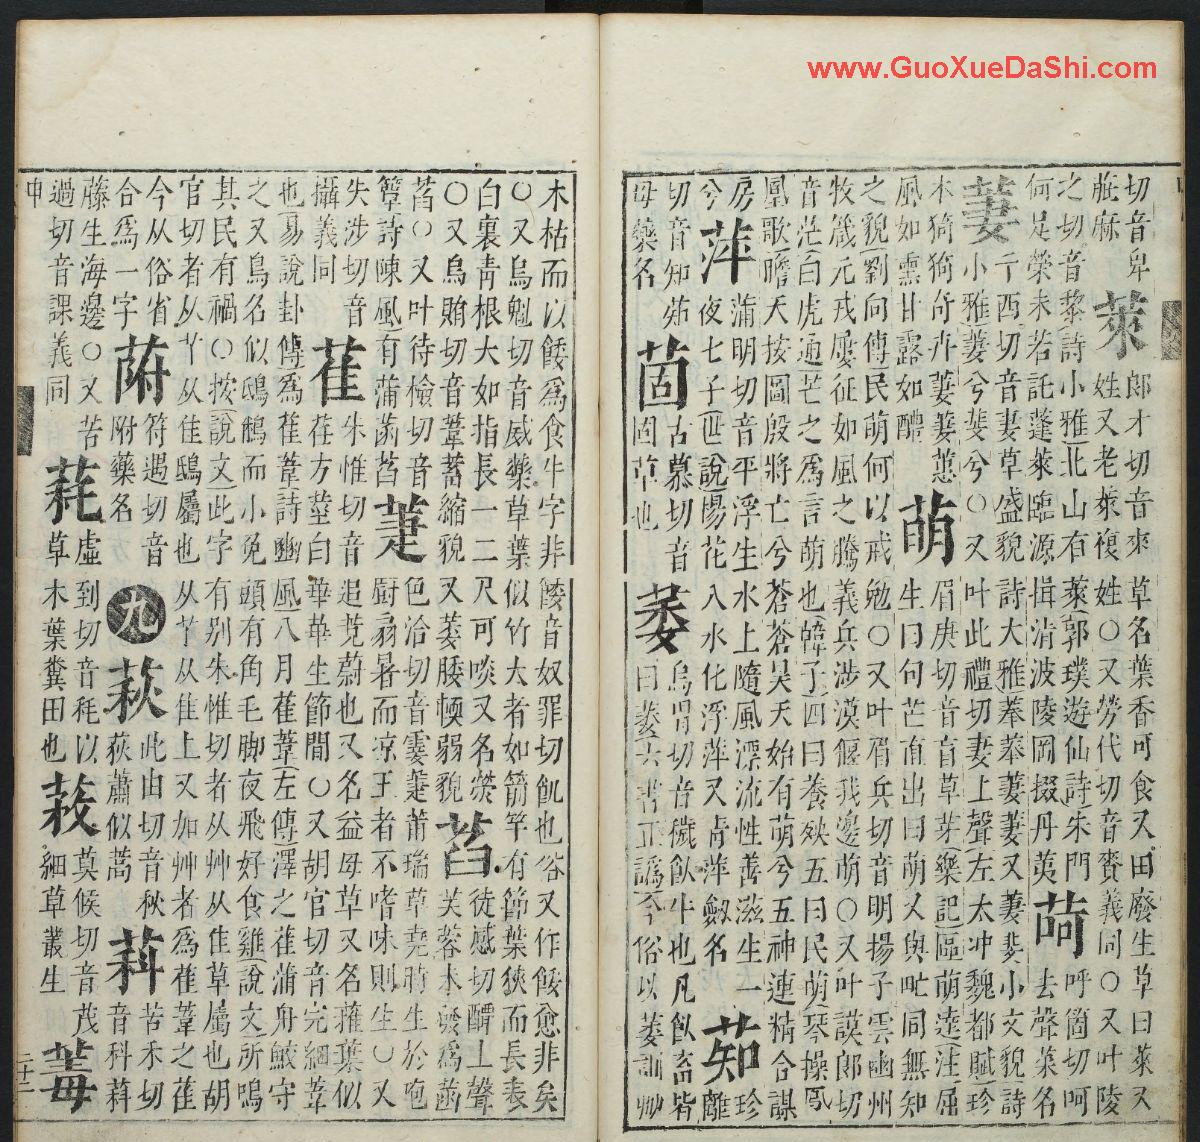 www.GuoXueDaShi.com
切音卑 萊 郎才切音來草名葉香可食又田廢生草曰萊又
蔴麻 姓又老萊複姓○又勞代切音賚義同○又叶陵
之切音黎詩小雅北山有萊郭璞遊仙詩朱門 苛 呼箇切呵
何足榮未若託蓬萊臨源挹清波陵岡掇丹荑 去聲菜名
萋 小雅萋兮斐兮○又叶此禮切妻上聲左太冲魏都賦珍
亍西切音妻草盛貌詩大雅菶菶萋萋又萋斐小文貌詩
木猗猗奇卉萋萋蕙 眉庚切音盲草芽樂記區萌達注屈
風如熏甘露如醴 萌 生曰句芒直出曰萌又與甿同無知
之貌劉向傳民萌何以戒勉○又叶眉兵切音明揚子雲幽州
牧箴元戎屢征如風之騰義兵涉漠偃我邊萌○又叶謨郎切
音茫白虎通芒之爲言萌也韓子四曰養殃五曰民萌琴操鳳
凰歌瞻天按圖殷將亡兮蒼蒼昊天始有萌兮五神連精合謀
房 萍 蒲明切音平浮生水上隨風漂流性善滋生一 珍
兮 夜七子世說陽花入水化浮萍又青萍劔名 茘 離
切音知茘 古慕切音 烏胃切音穢飲牛也凡飲畜皆
母藥名 茴 固草也 萎 曰萎六書正譌今俗以萎訓
木枯而以餧爲食牛字非餧音奴罪切飢也俗又作餧愈非矣
○又烏魁切音威藥草葉似竹大者如箭竿有節葉狹而長表
白裏青根大如指長一二尺可啖又名熒 徒感切醰上聲
○又烏賄切音葦蓄縮貌又萎腰𩓣弱貌 萏 芙蓉木發爲菡
萏○又叶待檢切音 色洽切音霎萐莆瑞草堯時生於庖
簟詩陳風有蒲菡萏 萐 厨扇暑而凉王者不嗜味則生○又
失涉切音 朱惟切音追茺蔚也又名益母草又名蓷葉似
攝義同 萑 荏方莖白華華生節間○又胡官切音完細葦
也易說卦傳爲萑葦詩豳風八月萑葦左傳澤之萑蒲舟鮫守
之又鳥名似鴟鵂而小兔頭有角毛脚夜飛好食雞說文所鳴
其民有禍○按說文此字有别朱惟切者从艸从隹草屬也胡
官切者从丫从隹鴟屬也从丫从隹上又加艸者爲萑葦之萑
今从俗省 符遇切音 此由切音秋 苦禾切
合爲一字 萷 附藥名 九 萩 荻蕭似蒿 萪 音科萪
藤生海邊○又苦 虛到切音秏以 莫候切音茂
過切音課義同 䓮 草木葉糞田也 䓭 細草叢生 萺
申
二十二